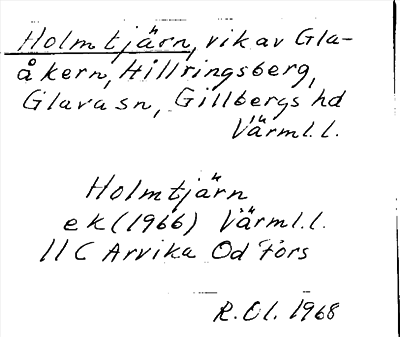 Holmtjärn, vik av Gla-
åkern, Hillringsberg,
Glava sn, Gillbergs hd
Värml. l.
Holmtjärn
ek (1966) Värml. l.
11 C Arvika Od Fors
R. Ol. 1968